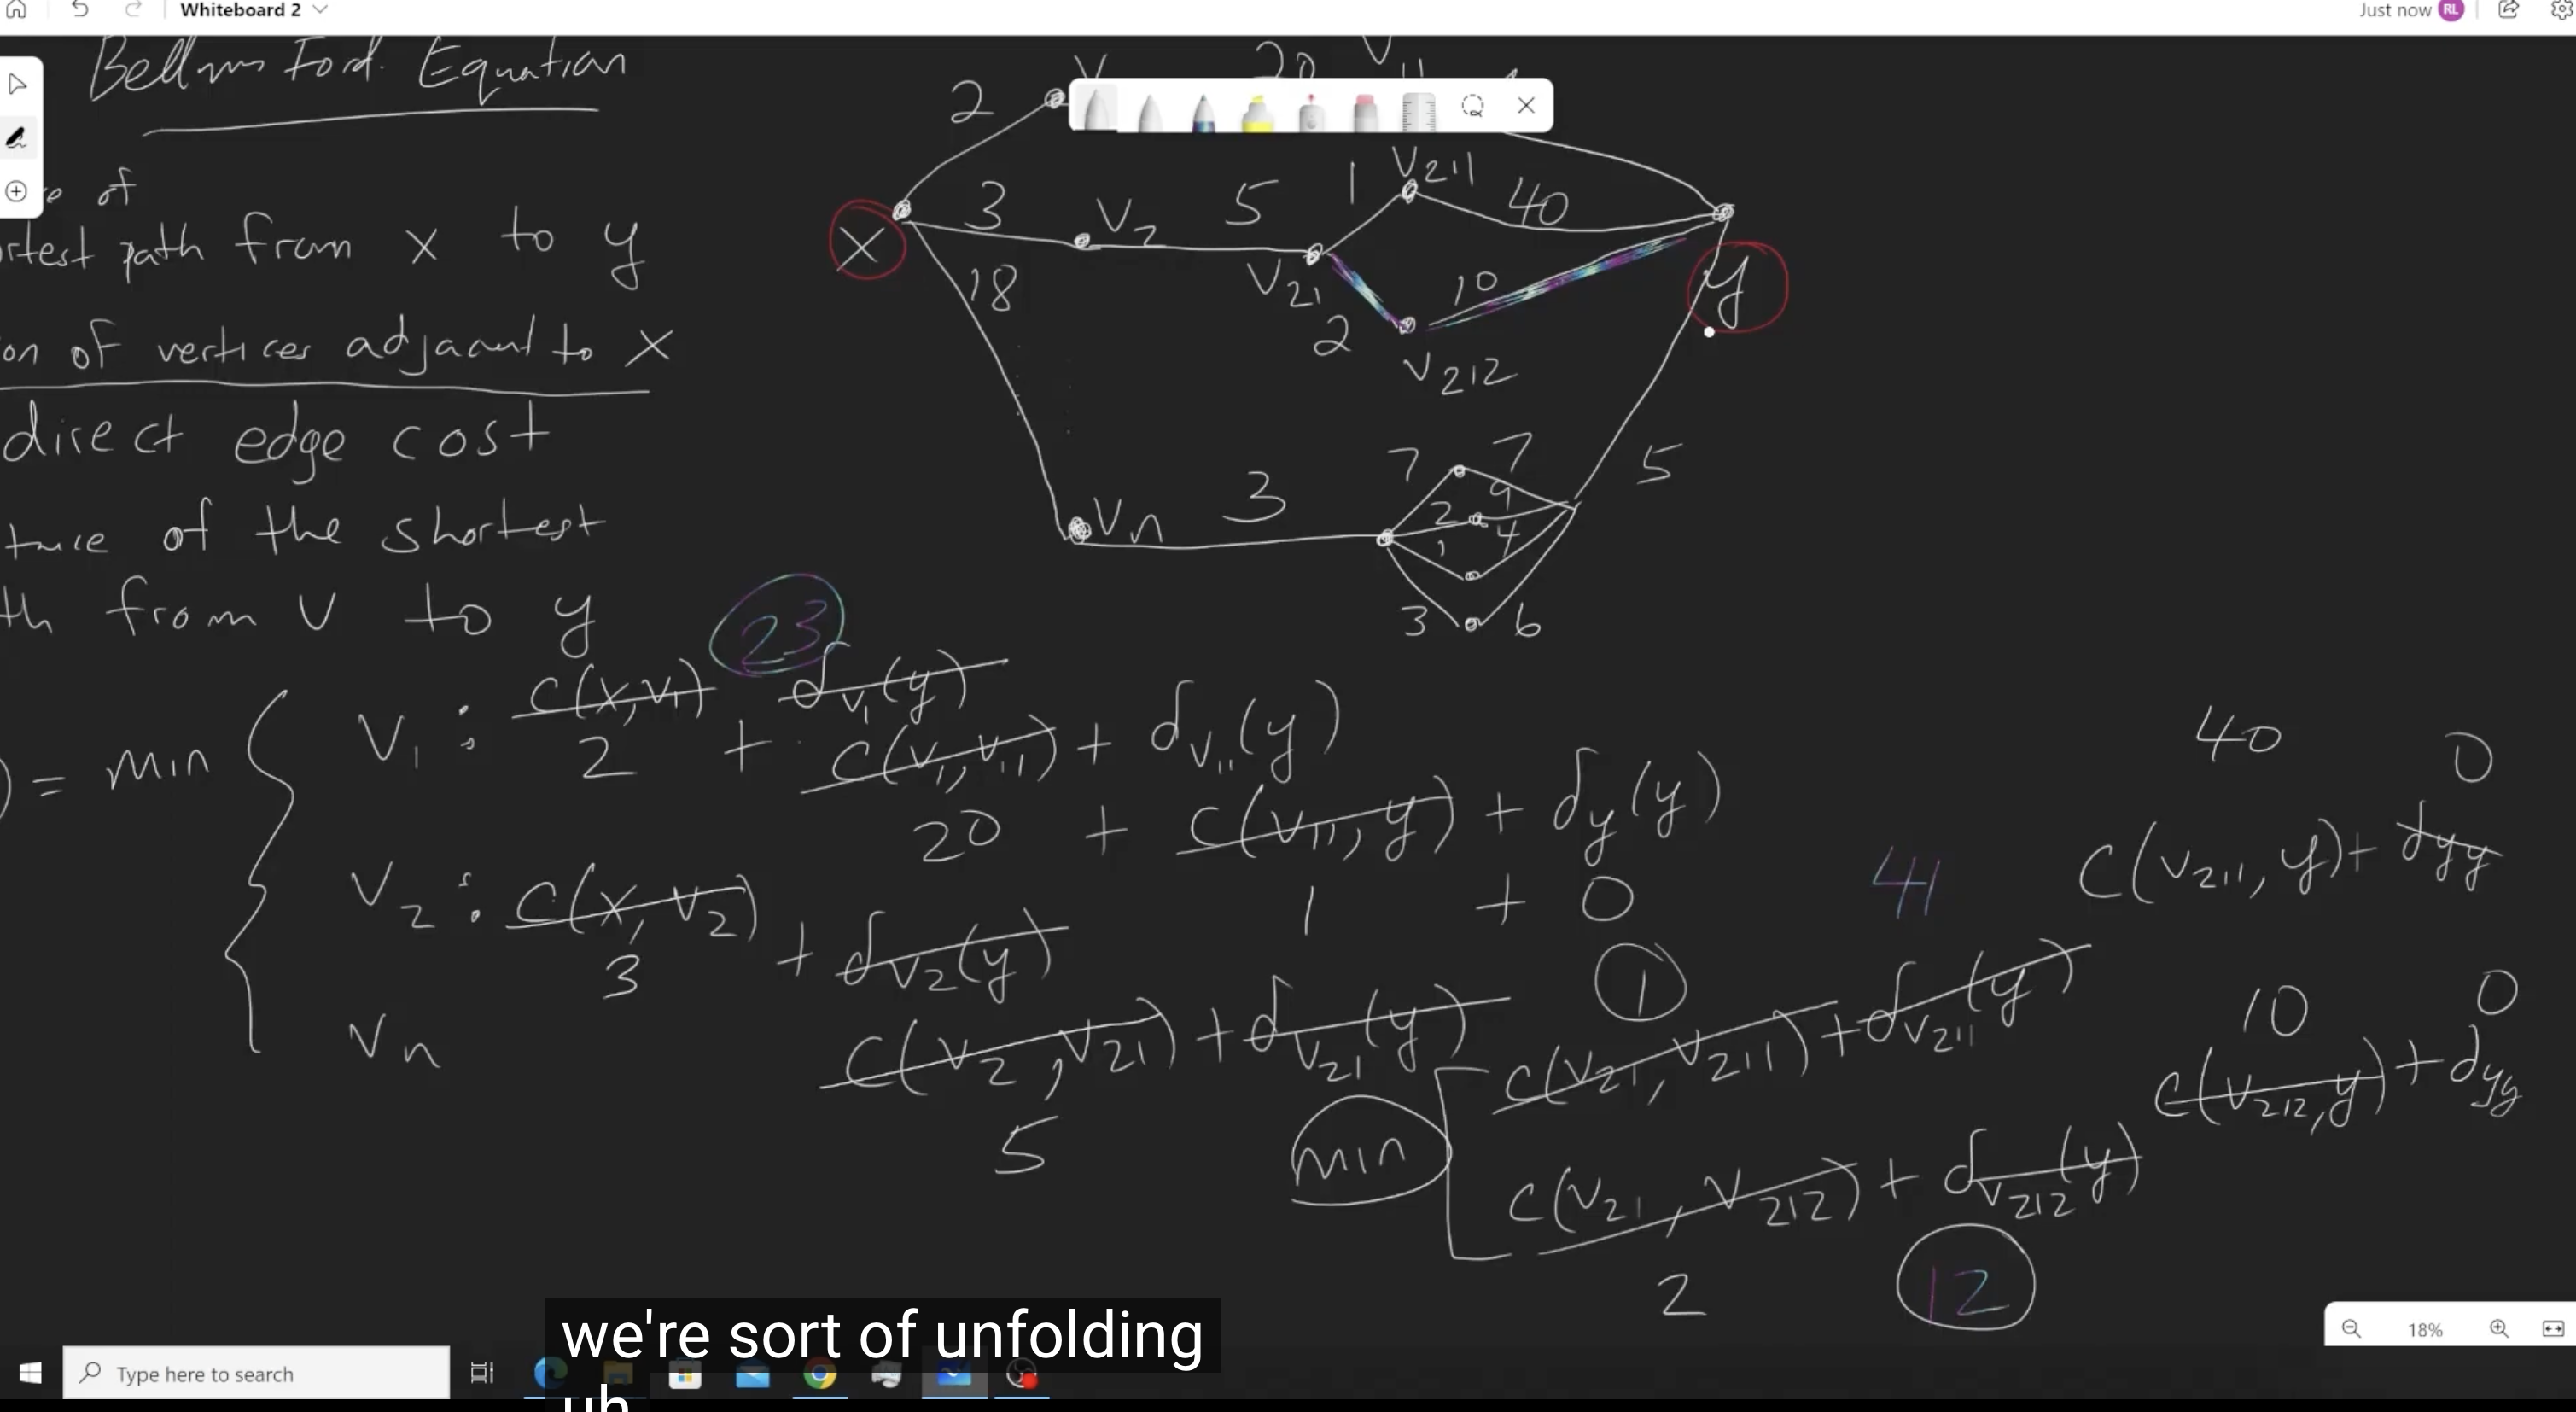 Whiteboard 2
Just now RL
Bellman Ford. Equation
of
rtest path from x to y
on of vertices adjacent to x
direct edge cost
tance of the shortest
th from v to y
2 V 20 V11
3 V2 5 1 V211 40
X
18 V21 10 y
2 V212
Vn 3 7 7 5
2 9
1 4
3 6
23
) = min
V1 : c(x,v1) dv1(y)
2 + c(v1,v11) + dv11(y)
20 + c(v11,y) + dy(y)
1 + 0
1
V2 : c(x,v2) + dv2(y)
3
c(v2,v21) + dv21(y)
5
Vn
min
40 0
41 C(v211,y) + dyy
c(v21,v211) + dv211(y)
10 0
c(v212,y) + dyy
c(v21,v212) + dv212(y)
2 12
we're sort of unfolding
uh
18%
Type here to search